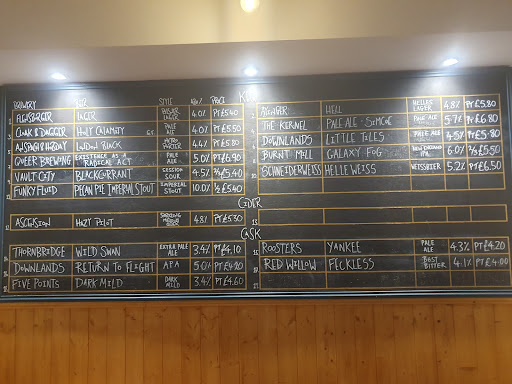 KEG
BREWERY STYLE ABV% PRICE
LAGER 4.0% PT £5.40
CLOAK & DAGGER HOLY CALAMITY GF PALE ALE 4.0% PT £5.50
LONDON BLACK PORTER 4.4% PT £5.80
QUEER BREWING EXISTENCE AS A RADICAL ACT PALE ALE 5.0% PT £6.40
VAULT CITY BLACKCURRANT SESSION SOUR 4.5% £5.40
FUNKY FLUID PECAN PIE IMPERIAL STOUT IMPERIAL STOUT 10.0% ½ £5.40
HELL HELLES LAGER 4.8% PT £5.80
THE KERNEL PALE ALE - SIMCOE PALE ALE 5.7% PT £6.80
DOWNLANDS LITTLE TILES PALE ALE 4.5% PT £5.80
BURNT MILL GALAXY FOG IPA 6.0% £5.50
SCHNEIDERWEISS HELLE WEISS WEISSBIER 5.2% PT £6.50
CIDER
ASCENSION HAZY PILOT 4.8% PT £5.30
CASK
THORNBRIDGE WILD SWAN EXTRA PALE ALE 3.4% PT £4.10
DOWNLANDS RETURN TO FLIGHT APA 5.0% PT £4.20
FIVE POINTS DARK MILD DARK MILD 3.4% PT £4.60
ROOSTERS YANKEE PALE ALE 4.3% PT £4.20
RED WILLOW FECKLESS BEST BITTER 4.1% PT £4.00